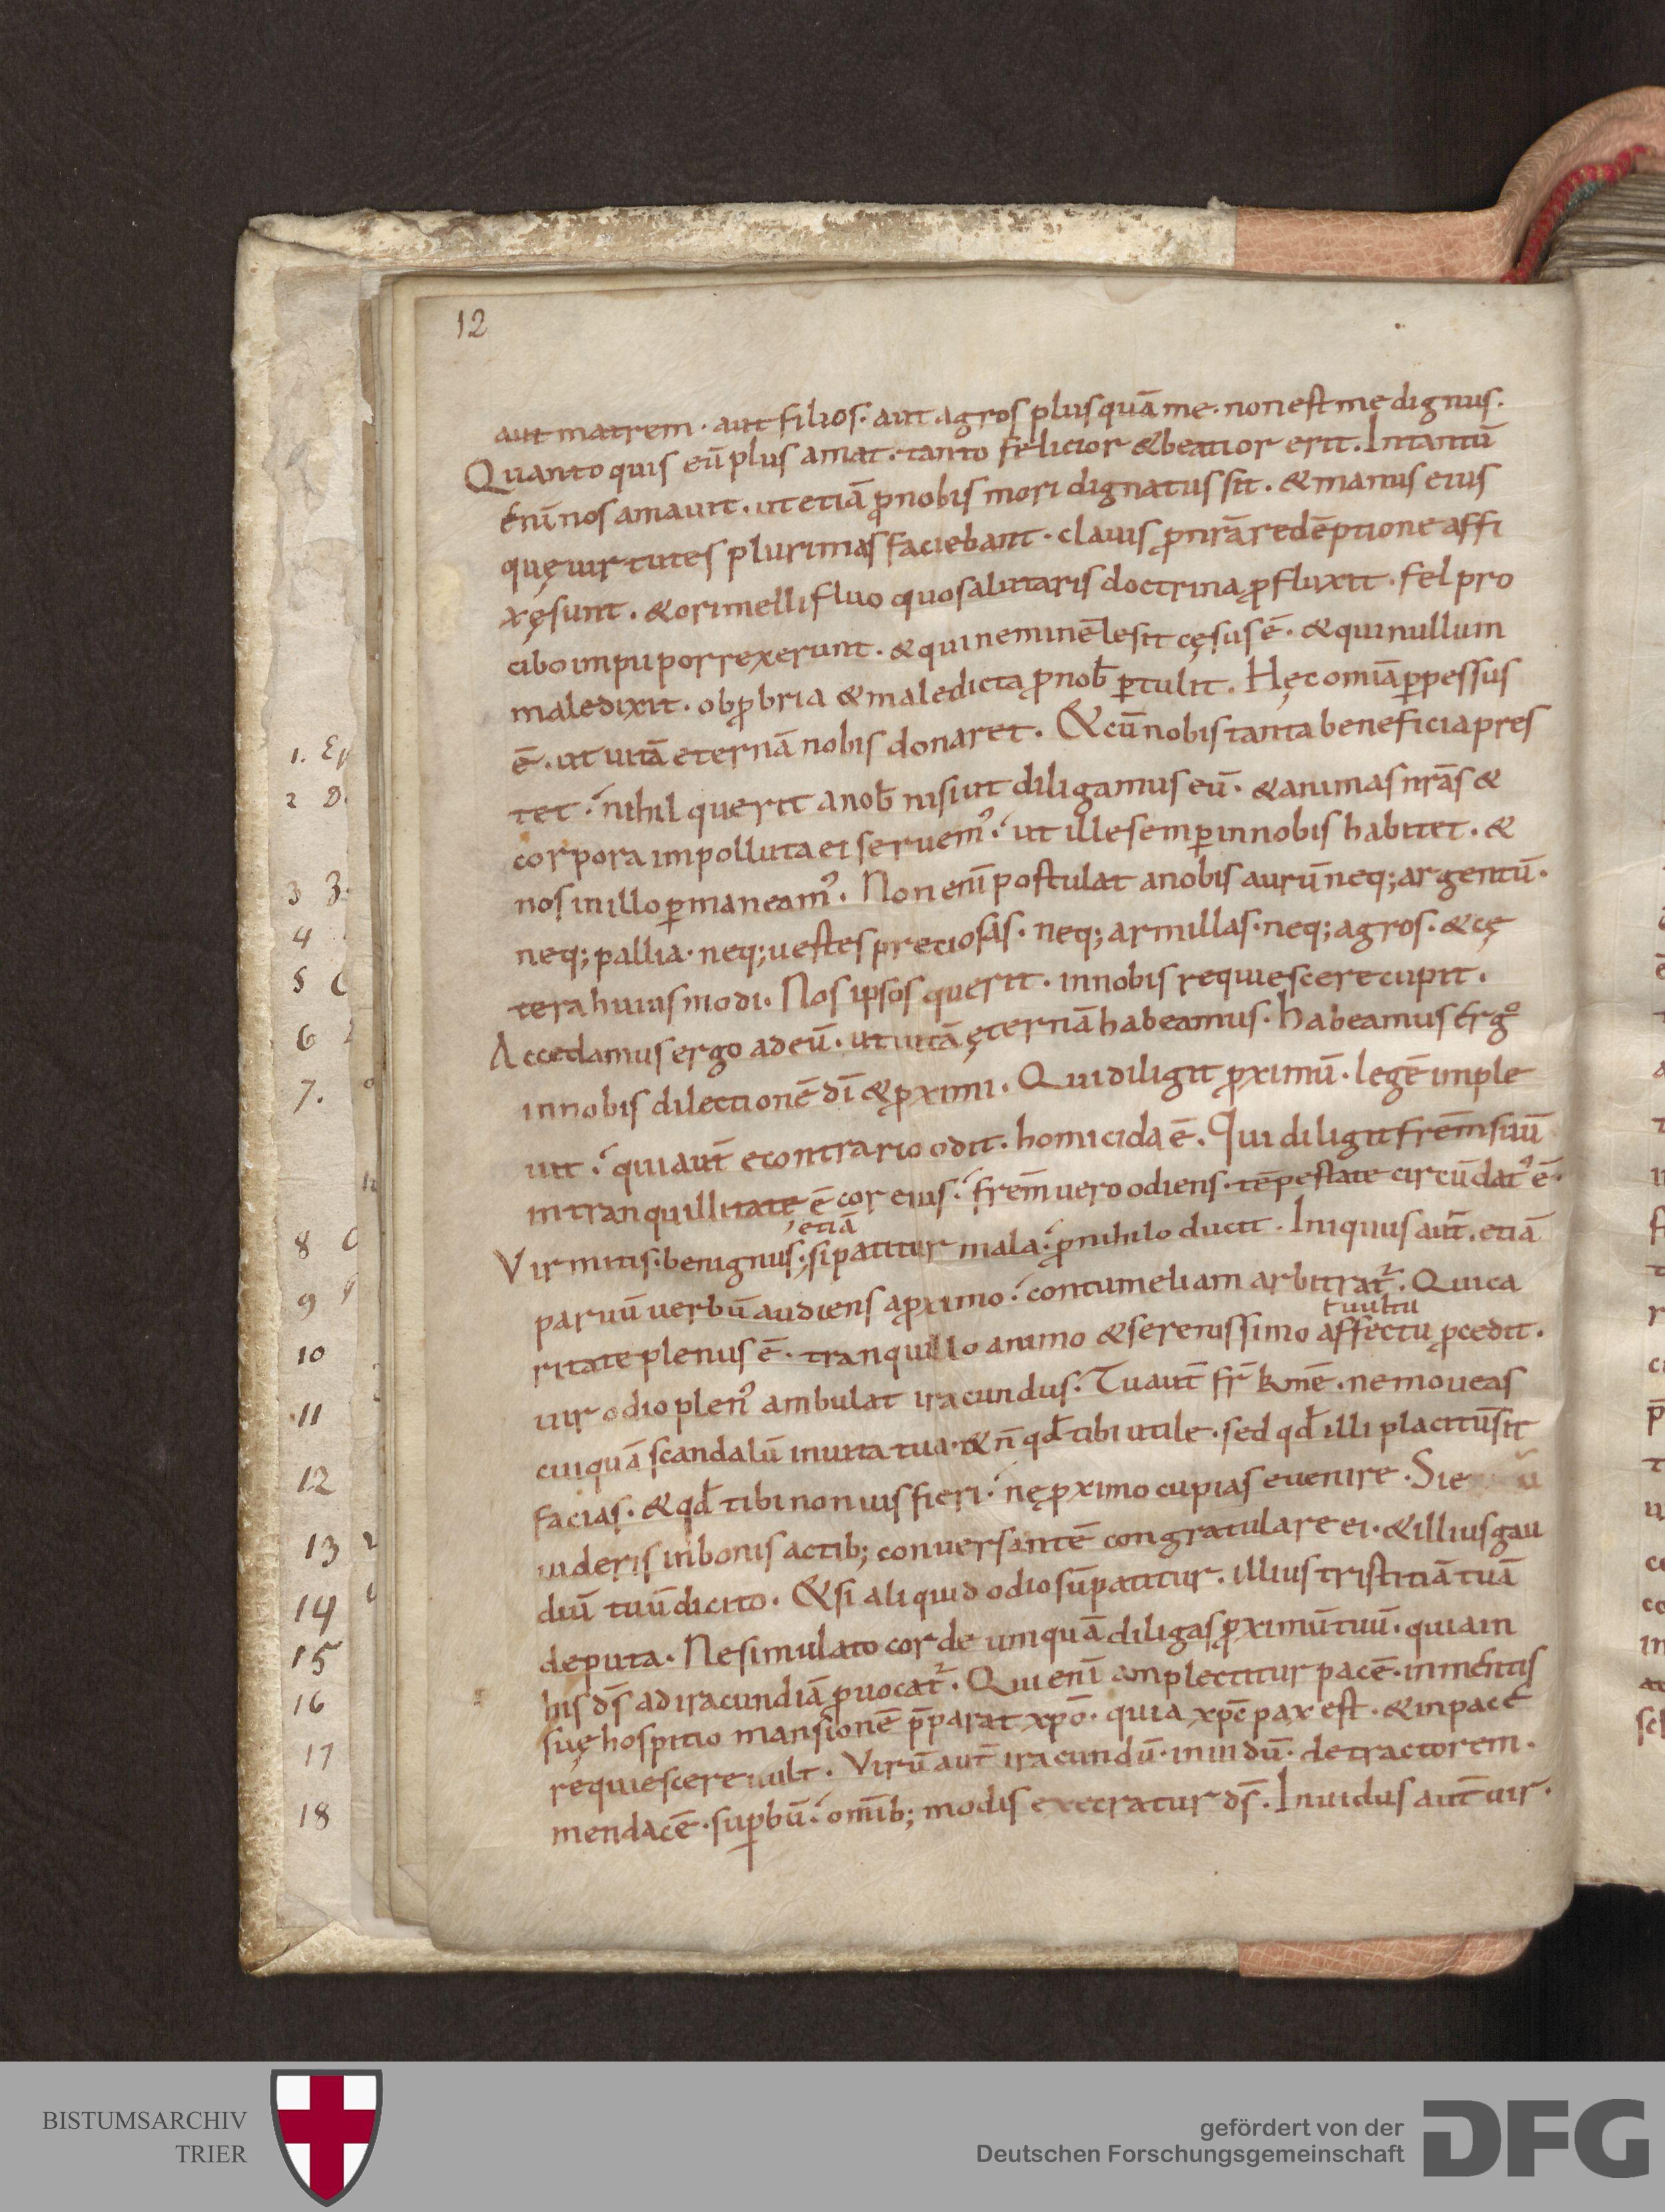 12
aut matrem · aut filios · aut agros plusquā me · non est me dignus ·
Quanto quis eū plus amat · tanto felicior & beatior erit . Intantū
enī nos amauit . ut etiā ꝓ nobis mori dignatus sit . & manus eius
quę uirtutes plurimas faciebant · clauis ꝓ nr̄a redēptione affi
xę sunt . & ori mellifluo quo salutaris doctrina ꝓfluxit . fel pro
cibo impii porrexerunt . & qui neminē lesit cęsus ē . & qui nullum
maledixit . obꝓbria & maledicta ꝓ nob̄ ꝑtulit . Hęc om̄ia ꝑpessus
ē . ut uitā eternā nobis donaret . & cū nobis tanta beneficia pres
tet : nihil querit a nob̄ nisi ut diligamus eū . & animas nr̄as &
corpora impolluta ei seruem' : ut ille semꝑ in nobis habitet . &
nos in illo ꝑmaneam' . Non enī postulat a nobis aurū neq; argentū .
neq; pallia · neq; uestes preciosas · neq; armillas · neq; agros · & cę
tera huiusmodi . Nos ipsos querit . in nobis requiescere cupit .
Accedamus ergo ad eū . ut uitā ęternā habeamus . habeamus ergº
in nobis dilectionē dī & ꝓximi . Qui diligit ꝓximū . legē imple
uit : qui aut̄ econtrario odit . homicida ē . Qui diligit frēm suū
in tranquillitate ē cor eius : frēm uero odiens · tēpestate circūdat' ē .
etiā
Vir mitis · benignus · si patitur mala : ꝓ nihilo ducit . Iniquus aut̄ . etiā
paruū uerbū audiens a ꝓximo : contumeliam arbitrat̄ . Qui ca
ł uultu
ritate plenus ē . tranquillo animo & serenissimo affectu ꝓcedit .
uir odio plen' ambulat iracundus . Tu aut̄ fr̄ k̄mē . ne moueas
cuiquā scandalū in uita tua . & n̄ qd̄ tibi utile . sed qd̄ illi placitū sit
facias . & qd̄ tibi non uis fieri : nę ꝓximo cupias euenire . Si
uideris in bonis actib; conuersantē congratulare ei . & illius gau
diū tuū dicito . & si aliquid odiosū patitur . illius tristitiā tuā
deputa . Ne simulato corde umquā diligas ꝓximū tuū . quia in
his dš ad iracundiā ꝓuocat̄ . Qui enī amplectitur pacē . in mentis
suę hospitio mansionē p̄parat xp̄o . quia xp̄c pax est . & in pace
requiescere uult . Virū aut̄ iracundū · inuidū · detractorem .
mendacē · suꝑbū : om̄ib; modis execratur dš . Inuidus aut̄ uir .
1. Ep
2 D.
3 3.
4
5 C
6
7.
8 C
9
10
11
12
13
14
15
16
17
18
BISTUMSARCHIV
TRIER
gefördert von der
Deutschen Forschungsgemeinschaft
DFG